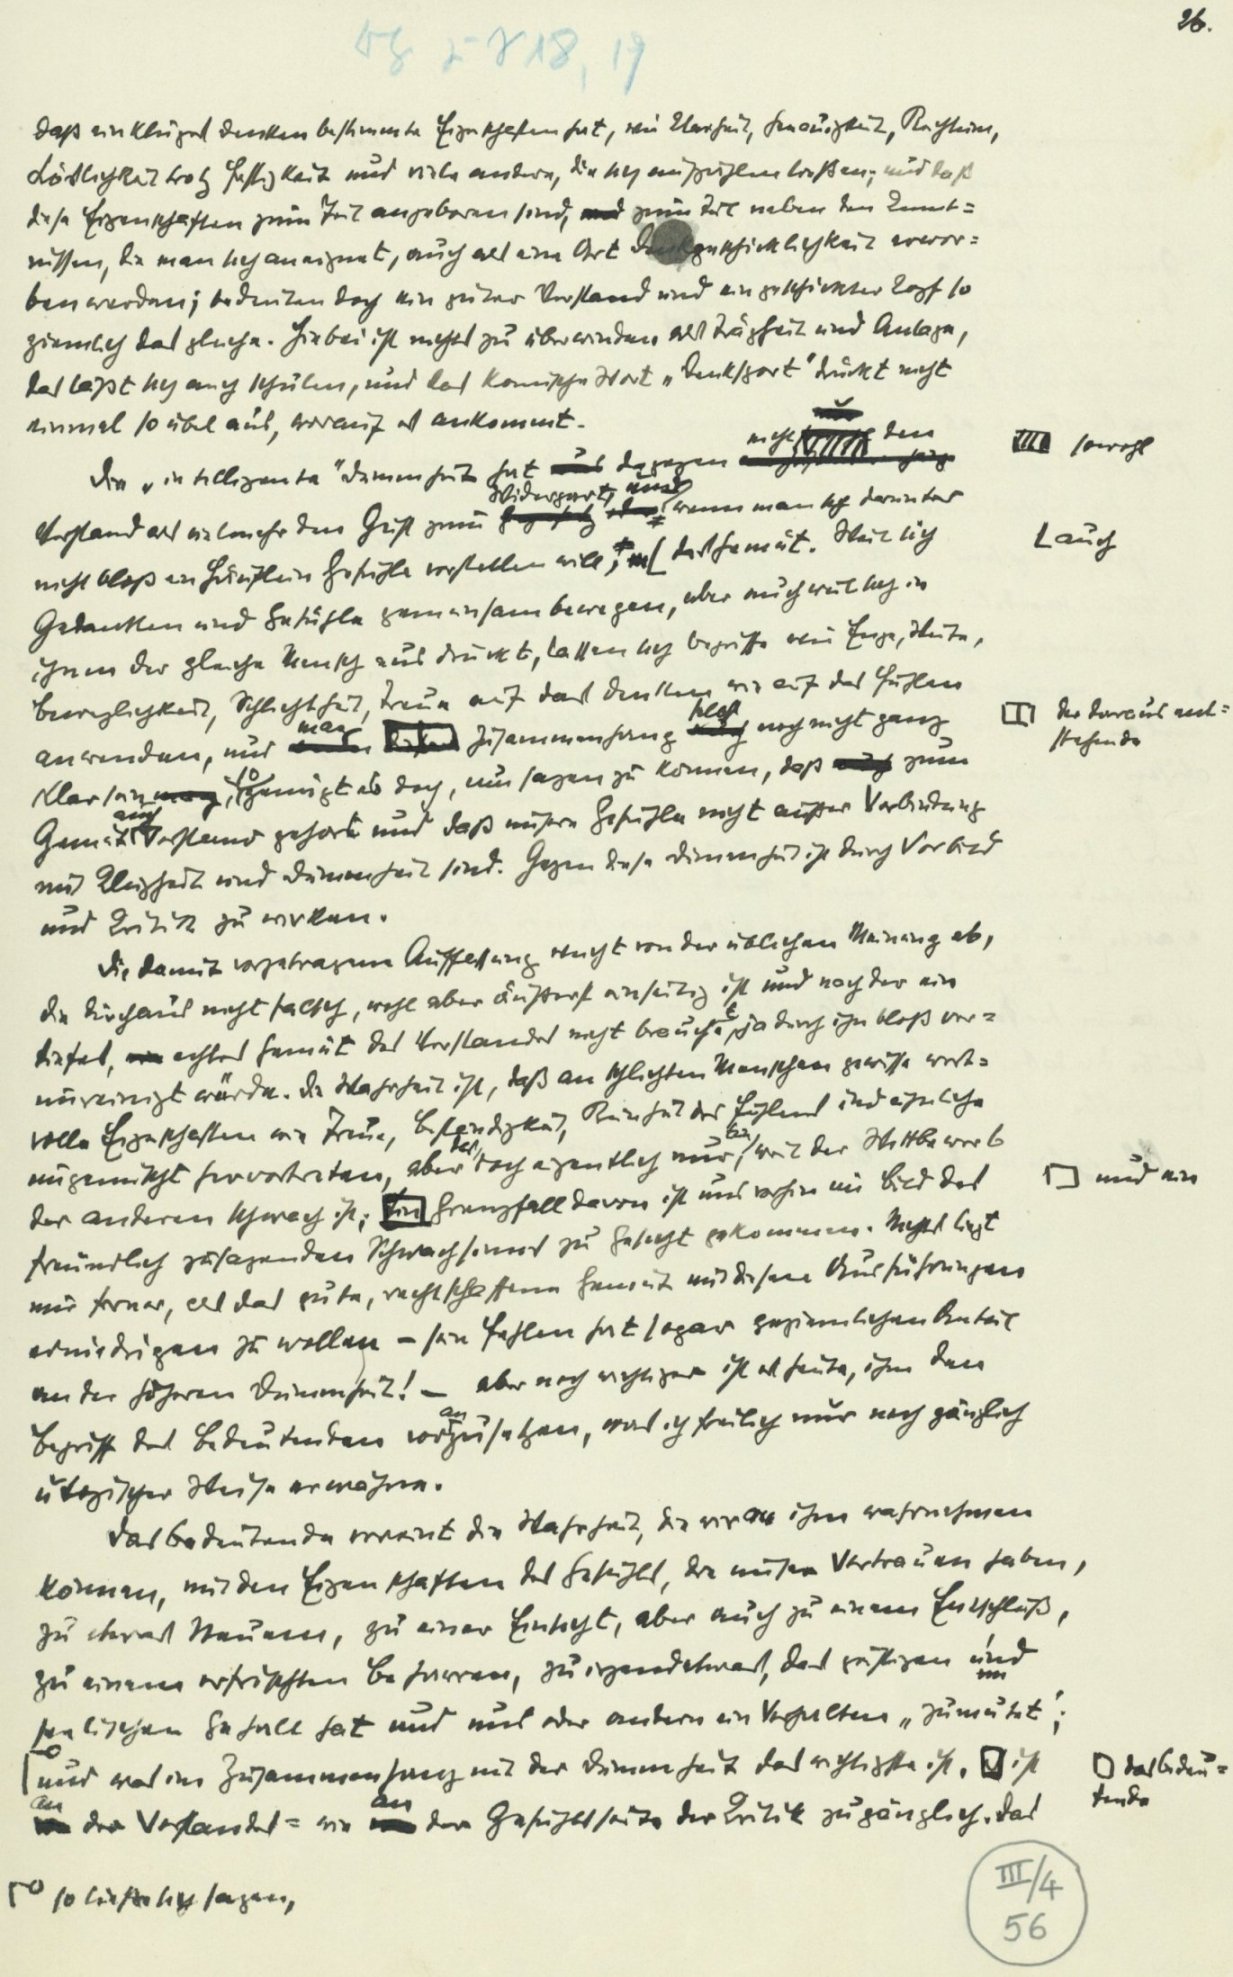 26.
daß ein kluges Denken bestimmte Eigenschaften hat, wie Klarheit, Genauigkeit, Reichtum,
Löslichkeit trotz Festigkeit und viele andere, die sich aufzählen ließen; und daß
diese Eigenschaften zum Teil angeboren sind, und zum Teil neben den Kennt=
nissen, die man sich aneignet, auch als eine Art Denkgeschicklichkeit erwor=
ben werden; bedeuten doch ein guter Verstand und ein geschickter Kopf so
ziemlich das gleiche. Hiebei ist nichts zu überwinden als Trägheit und Anlage,
das läßt sich auch schulen, und das komische Wort „Denksport" drückt nicht
einmal so übel aus, worauf es ankommt.
Die „intelligente" Dummheit hat dagegen nicht den
sowohl
Verstand als vielmehr den Geist zum Widerpart, und wenn man sich darunter
nicht bloß ein Häuflein Gefühle vorstellen will, das Gemüt. Weil sich
auch
Gedanken und Gefühle gemeinsam bewegen, aber auch weil sich in
ihnen der gleiche Mensch ausdrückt, lassen sich Begriffe wie Enge, Weite,
Beweglichkeit, Schlichtheit, Treue auf das Denken wie auf das Fühlen
anwenden, und mag Zusammenhang selbst noch nicht ganz
der daraus ent=
stehende
klar sein, so genügt es doch, um sagen zu können, daß zum
Gemüt auch Verstand gehört und daß unsere Gefühle nicht außer Verbindung
mit Klugheit und Dummheit sind. Gegen diese Dummheit ist durch Vorbild
und Kritik zu wirken.
Die damit vorgetragene Auffassung weicht von der üblichen Meinung ab,
die durchaus nicht falsch, wohl aber äußerst einseitig ist und nach der ein
tiefes, echtes Gemüt des Verstandes nicht brauchte, ja durch ihn bloß ver=
unreinigt würde. Die Wahrheit ist, daß an schlichten Menschen gewisse wert=
volle Eigenschaften wie Treue, Beständigkeit, Reinheit des Fühlens und ähnliche
ungemischt hervortreten, aber das doch eigentlich nur tun, weil der Wettbewerb
der anderen schwach ist; Ein Grenzfall davon ist uns vorhin im Bild des
und ein
freundlich zusagenden Schwachsinns zu Gesicht gekommen. Nichts liegt
mir ferner, als das gute, rechtschaffene Gemüt mit diesen Ausführungen
erniedrigen zu wollen – sein Fehlen hat sogar geziemlichen Anteil
an der höheren Dummheit! – aber noch wichtiger ist es heute, ihm den
Begriff des Bedeutenden voranzusetzen, was ich freilich nur noch gänzlich
utopischer Weise erwähne.
Das Bedeutende vereint die Wahrheit, die wir an ihm wahrnehmen
können, mit den Eigenschaften des Gefühls, die unser Vertrauen haben,
zu etwas Neuem, zu einer Einsicht, aber auch zu einem Entschluß,
zu einem erfrischten Beharren, zu irgendetwas, das geistigen und
seelischen Gehalt hat und uns oder andern ein Verhalten „zumutet";
und was im Zusammenhang mit der Dummheit das wichtigste ist, ist
das Bedeu=
tende
an der Verstandes= wie an der Gefühlsseite der Kritik zugänglich. Das
so ließe sich sagen,
III/4
56